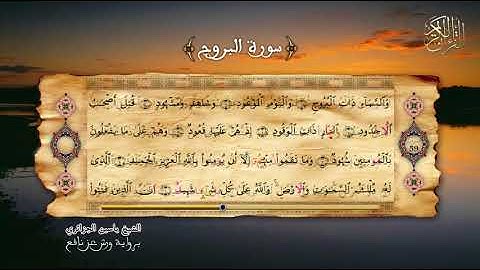 القرآن الكريم
سورة البروج
وَالسَّمَآءِ ذَاتِ الْبُرُوجِ وَالْيَوْمِ الْمَوْعُودِ وَشَاهِدٍ وَمَشْهُودٍ قُتِلَ أَصْحَٰبُ
الُاخْدُودِ النّارِ ذَاتِ الْوَقُودِ إِذْ هُمْ عَلَيْهَا قُعُودٌ وَهُمْ عَلَىٰ مَا يَفْعَلُونَ
بِالْمُومِنِينَ شُهُودٌ وَمَا نَقَمُوا مِنْهُمُ إِلَّا أَنْ يُّومِنُوا بِاللَّهِ الْعَزِيزِ الْحَمِيدِ الَّذِي
لَهُ مُلْكُ السَّمَٰوَٰتِ وَالَارْضِ وَاللَّهُ عَلَىٰ كُلِّ شَےْءٍ شَهِيدٌ إِنَّ الَّذِينَ فَتَنُوا
59
الشيخ ياسين الجزائري
برواية ورش عن نافع